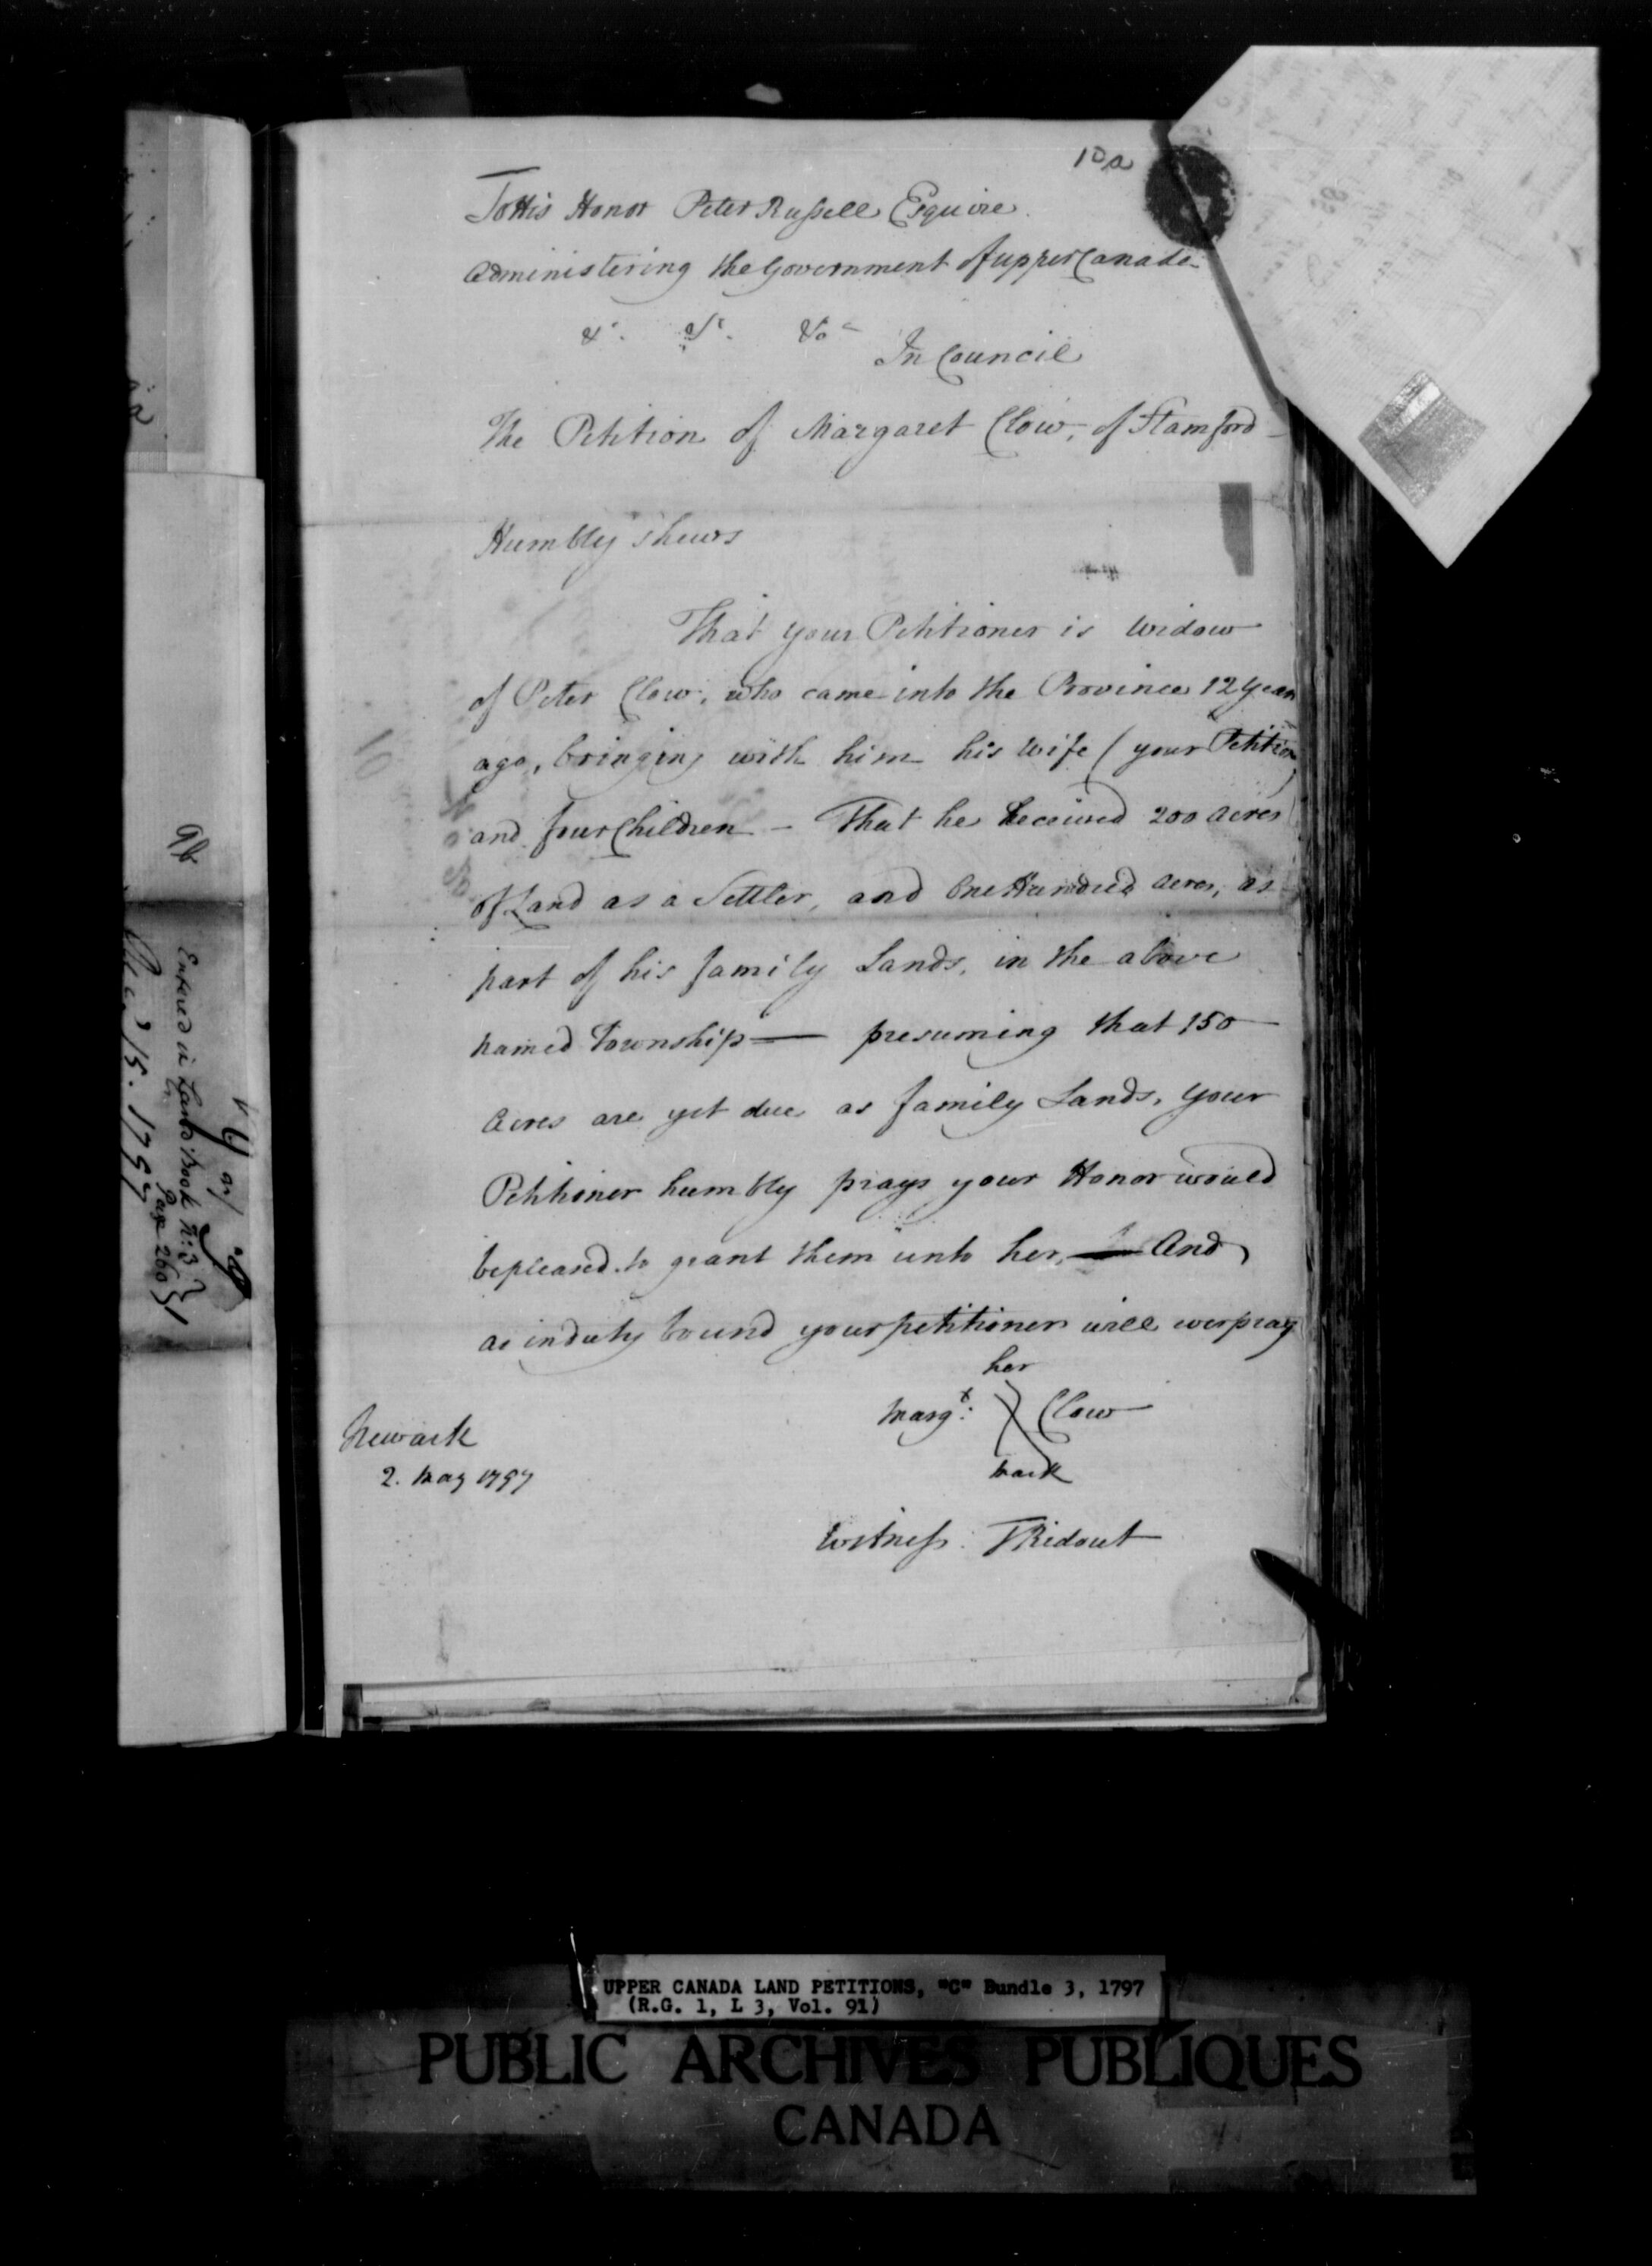 10a
To His Honor Peter Russell Esquire.
Administering the Government of upper Canada
&c. &c. &c
In Council
The Petition of Margaret Clow, of Stamford
Humbly shews
That your Petitioner is Widow
of Peter Clow, who came into the Province 12 years
ago, bringing with him his Wife (your Petition
and four Children - That he Received 200 acres
of Land as a Settler, and One Hundred Acres, as
part of his family Lands, in the above
named Township — presuming that 150
Acres are yet due as family Lands, your
Petitioner humbly prays your Honor would
be pleased to grant them unto her, — And
as in duty bound your petitioner will ever pray
her
Margt: X Clow
mark
Newark
2. May 1797
Witness. T Ridout
9b
Entered in Land Book No: 3
Page 260
15. 1797
UPPER CANADA LAND PETITIONS, "C" Bundle 3, 1797
(R.G. 1, L 3, Vol. 91)
PUBLIC ARCHIVES PUBLIQUES
CANADA